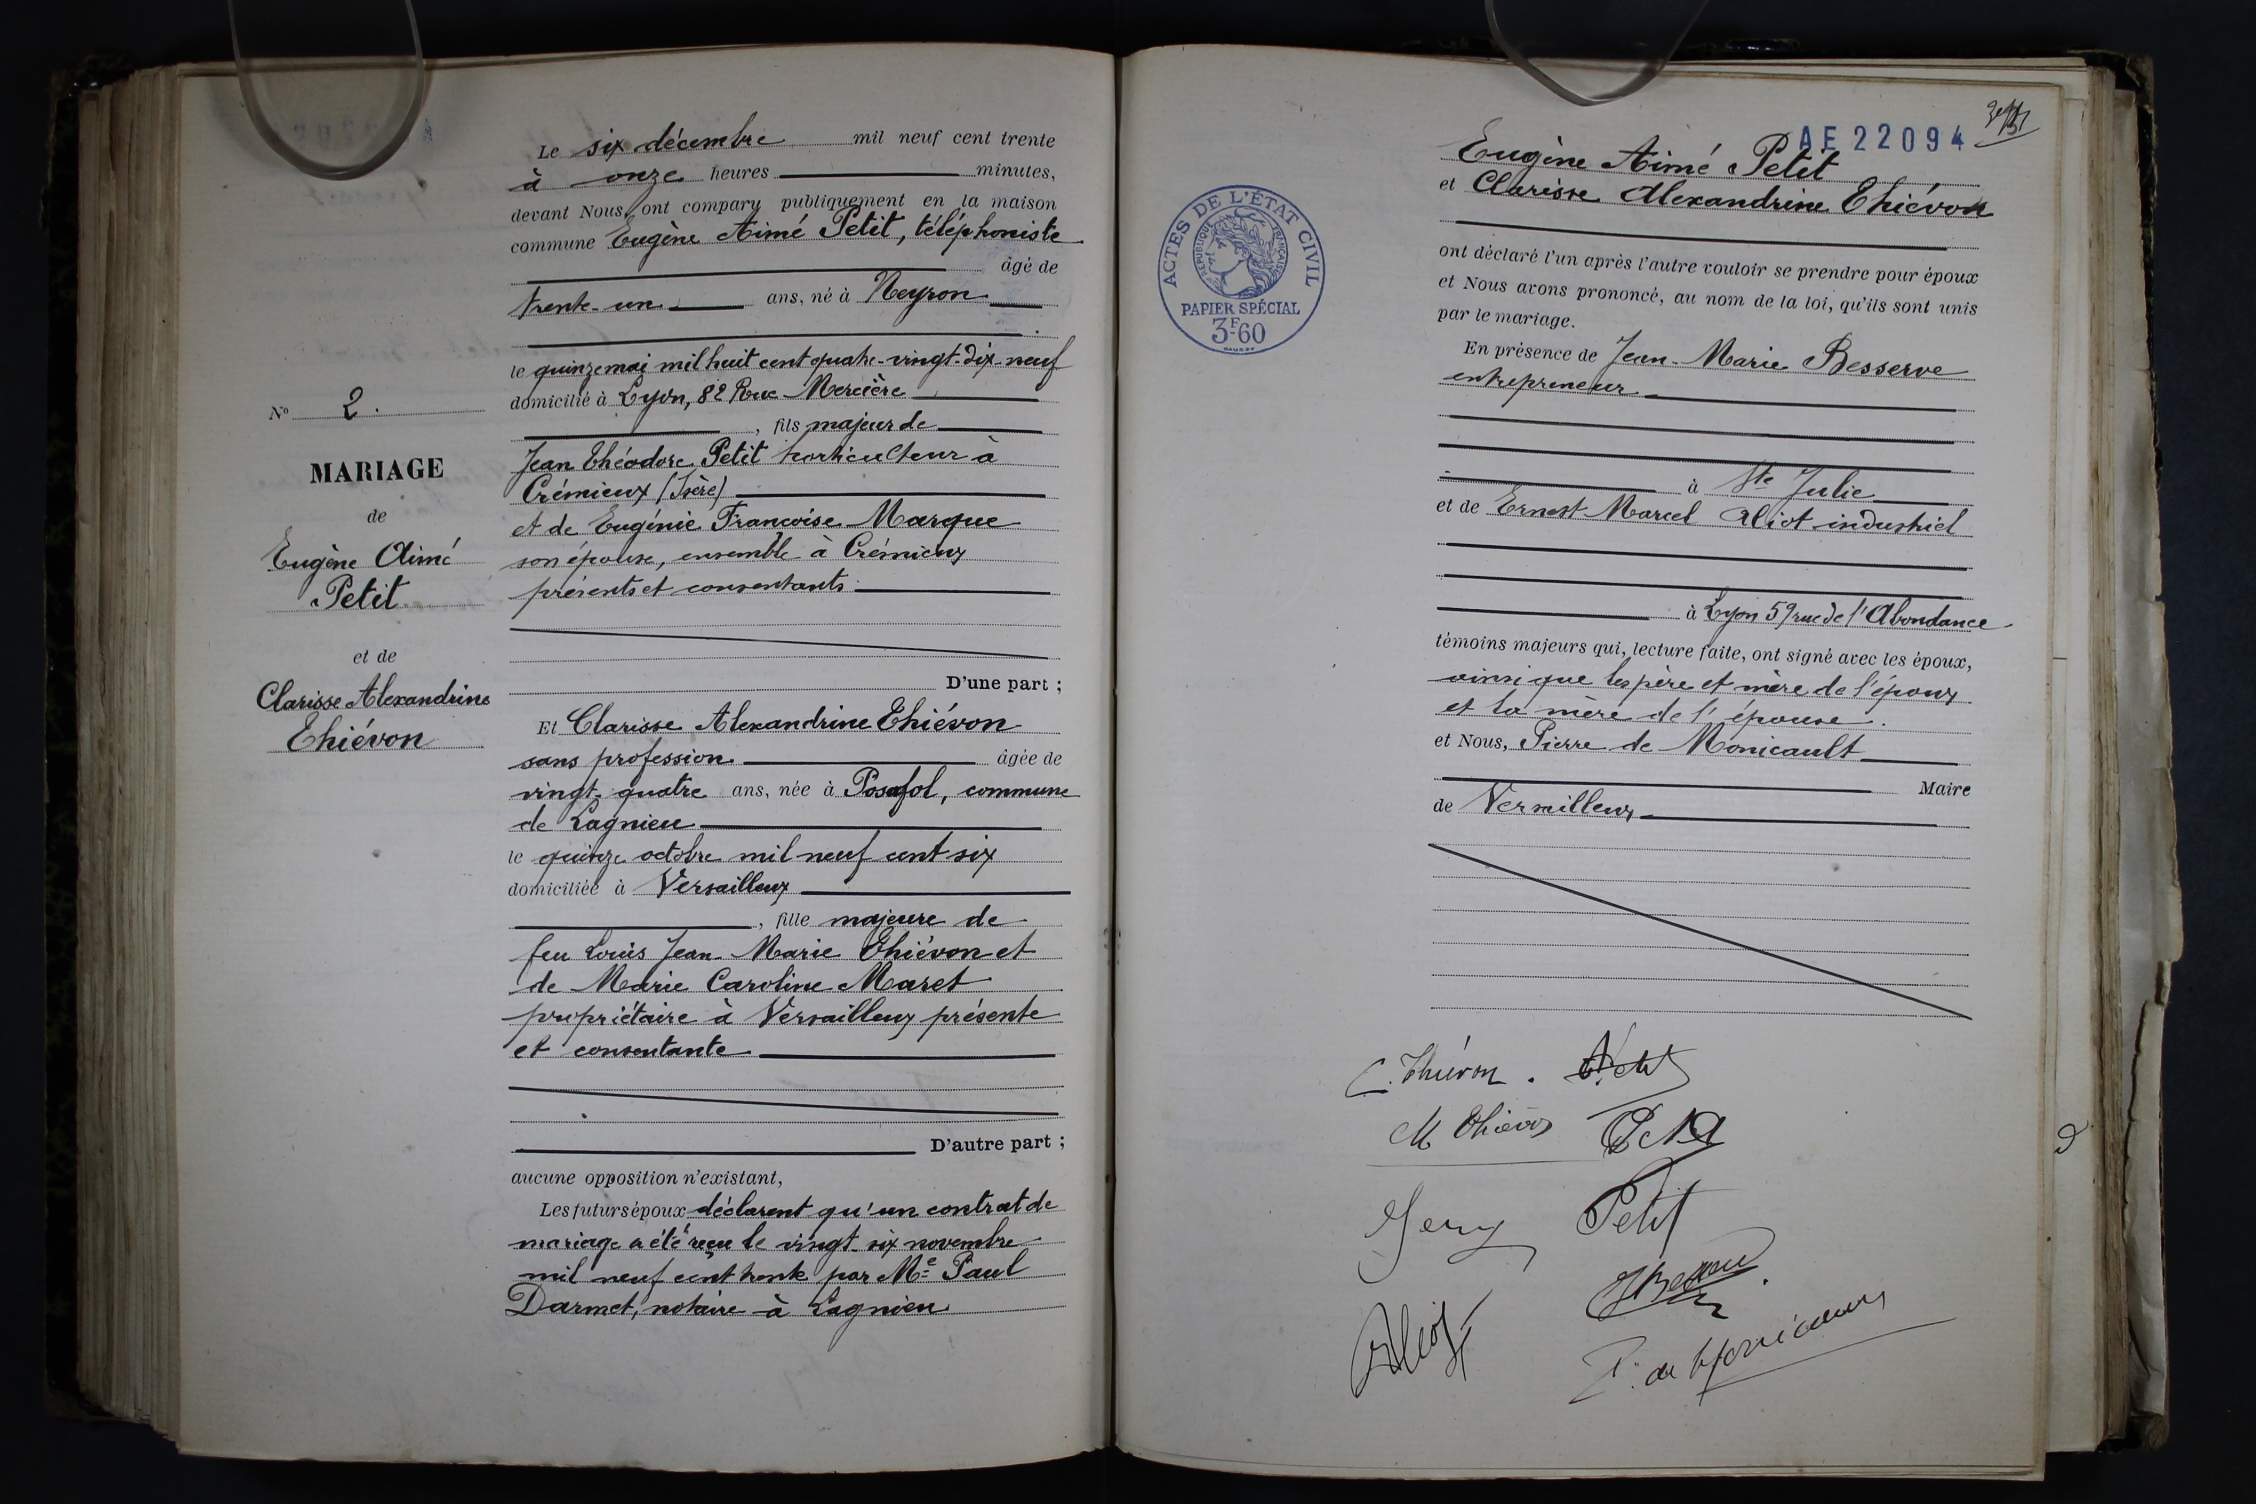 Le six décembre mil neuf cent trente
à onze heures minutes,
devant Nous, ont comparu publiquement en la maison
commune Eugène Aimé Petit, téléphoniste
âgé de
trente-un ans, né à Neyron
le quinze mai mil huit cent quatre-vingt-dix-neuf
domicilié à Lyon, 82 Rue Mercière
, fils majeur de
Jean Théodore Petit horticulteur à
Crémieux (Isère)
et de Eugénie Françoise Marque
son épouse, ensemble à Crémieux
présents et consentants
D'une part ;
N° 2.
MARIAGE
de
Eugène Aimé
Petit
et de
Clarisse Alexandrine
Thiévon
Et Clarisse Alexandrine Thiévon
sans profession âgée de
vingt-quatre ans, née à Posafol, commune
de Lagnieu
le quinze octobre mil neuf cent six
domiciliée à Versailleux
, fille majeure de
feu Louis Jean Marie Thiévon et
de Marie Caroline Maret
propriétaire à Versailleux présente
et consentante
D'autre part ;
aucune opposition n'existant,
Les futurs époux déclarent qu'un contrat de
mariage a été reçu le vingt-six novembre
mil neuf cent trente par Me Paul
Darmet, notaire à Lagnieu
AE 22094
ACTES DE L'ÉTAT CIVIL
RÉPUBLIQUE FRANÇAISE
PAPIER SPÉCIAL
3F60
Eugène Aimé Petit
et Clarisse Alexandrine Thiévon
ont déclaré l'un après l'autre vouloir se prendre pour époux
et Nous avons prononcé, au nom de la loi, qu'ils sont unis
par le mariage.
En présence de Jean-Marie Besserve
entrepreneur
à Ste Julie
et de Ernest Marcel Aliot industriel
à Lyon 59 rue de l'Abondance
témoins majeurs qui, lecture faite, ont signé avec les époux,
ainsi que les père et mère de l'époux
et la mère de l'épouse.
et Nous, Pierre de Monicault
Maire
de Versailleux
C. Thiévon. Petit
M Thiévon
Petit
Aliot
P. de Monicault